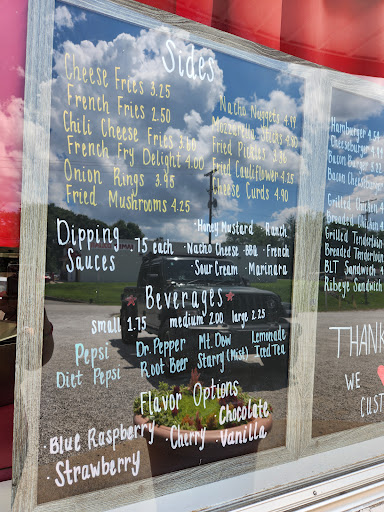 Sides
Cheese Fries 3.25
French Fries 2.50
Chili Cheese Fries 3.60
French Fry Delight 4.00
Onion Rings 3.95
Fried Mushrooms 4.25
Nacho Nuggets 4.49
Mozzerella Sticks 4.50
Fried Pickles 3.86
Fried Cauliflower 4.25
Cheese Curds 4.90
Dipping Sauces .75 each
·Honey Mustard ·Ranch
·Nacho Cheese ·BBQ ·French
·Sour Cream ·Marinara
Beverages
small 1.75 medium 2.00 large 2.25
Pepsi Dr. Pepper Mt. Dew Lemonade
Diet Pepsi Root Beer Starry (Mist) Iced Tea
Flavor Options
·Blue Raspberry ·Cherry ·Chocolate
·Strawberry ·Vanilla
Hamburger
Cheeseburger
Bacon Burger
Bacon Cheese
Grilled
Breaded
Grilled Tenderloin
Breaded Tenderloin
BLT Sandwich
Ribeye Sandwich
THANK
WE
CUST